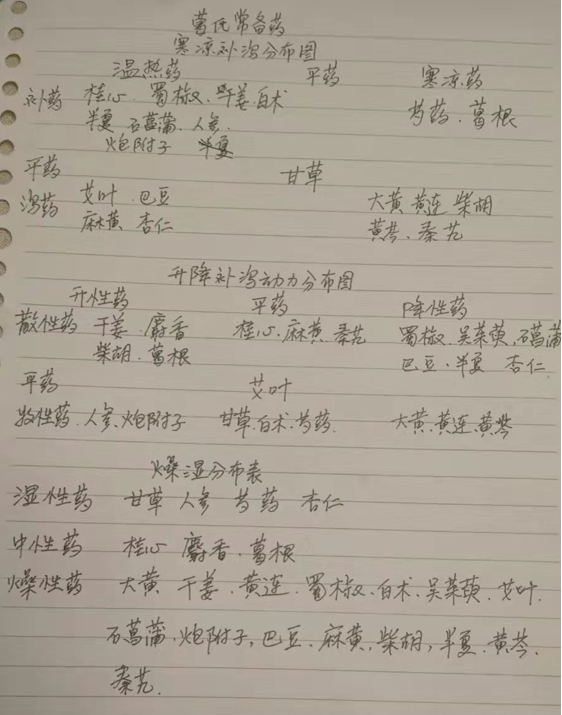 葛氏常备药
寒凉补泻分布图
温热药 平药 寒凉药
补药 桂心、蜀椒、干姜、白术 芍药、葛根
半夏、石菖蒲、人参、
炮附子
平药 甘草
泻药 艾叶、巴豆 大黄 黄连 柴胡
麻黄 杏仁 黄芩、秦艽
升降补泻动力分布图
升性药 平药 降性药
散性药 干姜、麝香 桂心、麻黄、秦艽 蜀椒、吴茱萸、石菖蒲
柴胡、葛根 巴豆、半夏 杏仁
平药 艾叶
收性药、人参、炮附子 甘草、白术、芍药、 大黄、黄连、黄芩
燥湿分布表
湿性药 甘草 人参 芍药 杏仁
中性药 桂心 麝香、葛根
燥性药 大黄 干姜、黄连、蜀椒、白术、吴茱萸、艾叶、
石菖蒲、炮附子,巴豆、麻黄,柴胡,半夏、黄芩、
秦艽、